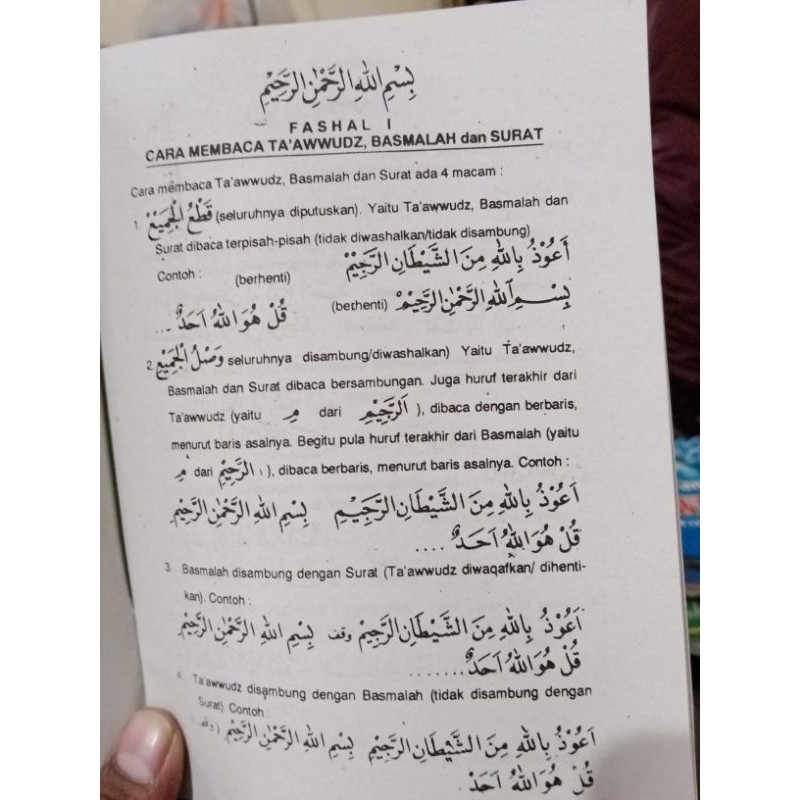 بِسْمِ اللهِ الرَّحْمٰنِ الرَّحِيْمِ
FASHAL I
CARA MEMBACA TA'AWWUDZ, BASMALAH dan SURAT
Cara membaca Ta'awwudz, Basmalah dan Surat ada 4 macam :
1. قَطْعُ الْجَمِيْعِ (seluruhnya diputuskan). Yaitu Ta'awwudz, Basmalah dan
Surat dibaca terpisah-pisah (tidak diwashalkan/tidak disambung)
Contoh : (berhenti) أَعُوْذُ بِاللهِ مِنَ الشَّيْطَانِ الرَّجِيْمْ
قُلْ هُوَ اللهُ اَحَدٌ ... (berhenti) بِسْمِ اللهِ الرَّحْمٰنِ الرَّحِيْمْ
2. وَصْلُ الْجَمِيْعِ seluruhnya disambung/diwashalkan) Yaitu Ta'awwudz,
Basmalah dan Surat dibaca bersambungan. Juga huruf terakhir dari
Ta'awwudz (yaitu مِ dari اَلرَّجِيْمِ ), dibaca dengan berbaris,
menurut baris asalnya. Begitu pula huruf terakhir dari Basmalah (yaitu
مِ dari الرَّحِيْمِ ), dibaca berbaris, menurut baris asalnya. Contoh :
اَعُوْذُ بِاللهِ مِنَ الشَّيْطَانِ الرَّجِيْمِ بِسْمِ اللهِ الرَّحْمٰنِ الرَّحِيْمِ
قُلْ هُوَ اللهُ اَحَدٌ ....
3. Basmalah disambung dengan Surat (Ta'awwudz diwaqafkan/ dihenti-
kan). Contoh :
اَعُوْذُ بِاللهِ مِنَ الشَّيْطَانِ الرَّجِيْمْ وقف بِسْمِ اللهِ الرَّحْمٰنِ الرَّحِيْمِ
قُلْ هُوَ اللهُ اَحَدٌ .......
4. Ta'awwudz disambung dengan Basmalah (tidak disambung dengan
Surat). Contoh :
اَعُوْذُ بِاللهِ مِنَ الشَّيْطَانِ الرَّجِيْمِ بِسْمِ اللهِ الرَّحْمٰنِ الرَّحِيْمْ (وقف)
قُلْ هُوَ اللهُ اَحَدٌ